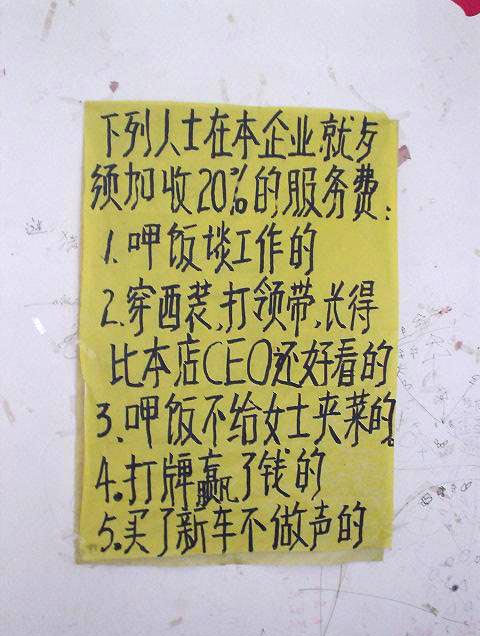 下列人士在本企业就歺
须加收20%的服务费：
1.呷饭谈工作的
2.穿西装,打领带,长得
比本店CEO还好看的
3.呷饭不给女士夹菜的。
4.打牌赢了钱的
5.买了新车不做声的